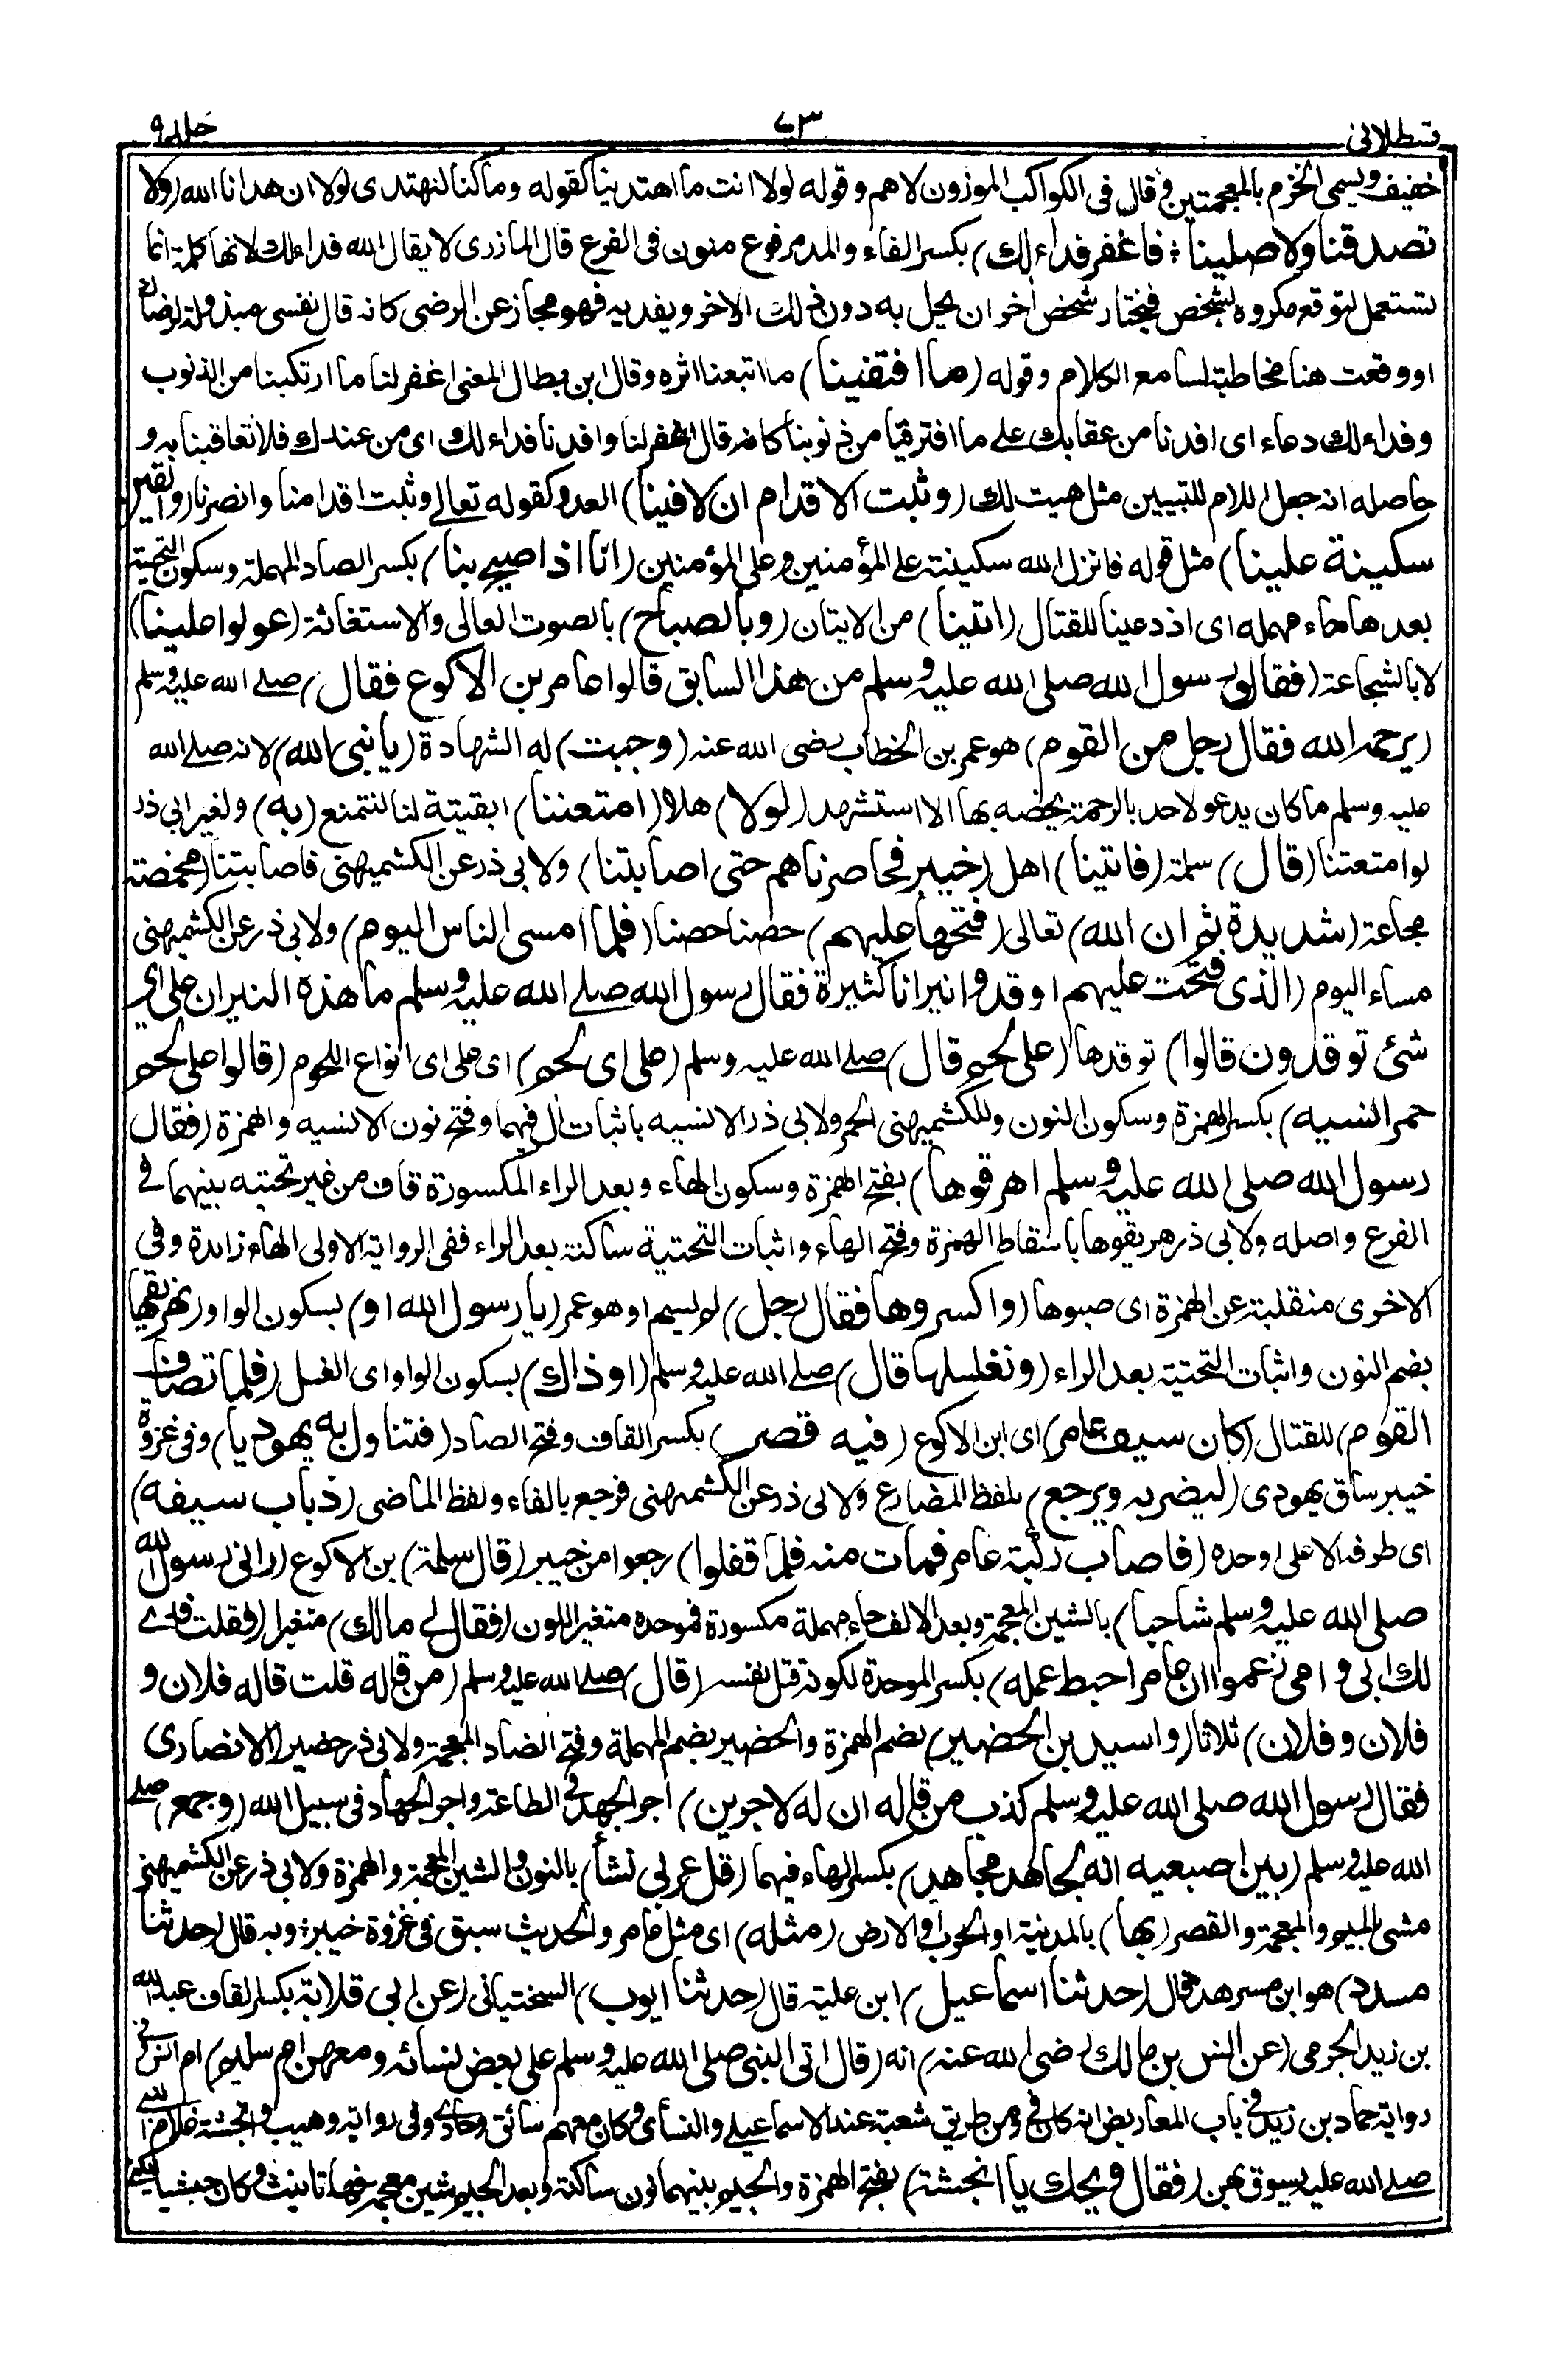 قسطلانی ٧٣ جلد ٩
خفیف ویسمی الخزم بالمعجمتین وقال فی الکواکب الموزون لاهم وقوله لولا انت ما اهتدینا کقوله وما کنا لنهتدی لولا ان هدانا الله (ولا
تصدقنا ولا صلینا ؛ فاغفر فداء لك) بکسر الفاء والمد مرفوع منون فی الفرع قال المازری لا یقال الله فداء لك لانها کلمة انما
تستعمل لتوقع مکروه لشخص فیختار شخص اخر ان یحل به دون ذلك الاخر ویفدیه فهو مجاز عن الرضی کانه قال نفسی مبذولة لرضاك
او وقعت هنا مخاطبة لسامع الکلام وقوله (ما اقتفینا) ما اتبعنا اثره وقال ابن بطال المعنی اغفر لنا ما ارتکبنا من الذنوب
وفداء لك دعاء ای افدنا من عقابك علی ما اقترفنا من ذنوبنا کانه قال اغفر لنا وافدنا فداء لك ای من عندك فلا تعاقبنا به و
حاصله انه جعل اللام للتبیین مثل هیت لك (وثبت الاقدام ان لاقینا) العدو کقوله تعالی وثبت اقدامنا وانصرنا (والقین
سکینة علینا) مثل قوله فانزل الله سکینته علی المؤمنین وعلی المؤمنین (انا اذا صیح بنا) بکسر الصاد المهملة وسکون التحتیة
بعدها حاء مهمله ای اذ دعینا للقتال (اتینا) من الایتان (وبالصباح) بالصوت العالی والاستغاثة (عولوا علینا)
لا بالشجاعة (فقال رسول الله صلی الله علیه وسلم من هذا السابق قالوا عامر بن الاکوع فقال) صلے الله علیه وسلم
(یرحمه الله فقال رجل من القوم) هو عمر بن الخطاب رضی الله عنه (وجبت) له الشهادة (یا نبی الله) لانه صلے الله
علیه وسلم ما کان یدعو لاحد بالرحمة یخصه بها الا استشهد (لولا) هلا (امتعتنا) ابقیته لنا لنتمتع (به) ولغیر ابی ذر
لو امتعتنا (قال) سلمة (فاتینا) اهل (خیبر فحاصرناهم حتی اصابتنا) ولابی ذر عن الکشمیهنی فاصابتنا (مخمصة
مجاعة (شدیدة ثم ان الله) تعالی (فتحها علیهم) حصنا حصنا (فلما امسی الناس الیوم) ولابی ذر عن الکشمیهنی
مساء الیوم (الذی فتحت علیهم اوقدوا نیرانا کثیرة فقال رسول الله صلے الله علیه وسلم ما هذه النیران علی ای
شئ توقدون قالوا) توقدها (علی لحم قال) صلے الله علیه وسلم (علی ای لحم) ای علی ای انواع اللحوم (قالوا علی لحم
حمر انسیه) بکسر الهمزة وسکون النون وللکشمیهنی الحمر ولابی ذر الانسیه باثبات ال فیهما وفتح نون الانسیه والهمزة (فقال
رسول الله صلی الله علیه وسلم اهرقوها) بفتح الهمزة وسکون الهاء وبعد الراء المکسورة قاف من غیر تحتیه بینهما فے
الفرع واصله ولابی ذر هریقوها باسقاط الهمزة وفتح الهاء واثبات التحتیة ساکنة بعد الراء ففی الروایة الاولی الهاء زائدة وفی
الاخری منقلبة عن الهمزة ای صبوها (واکسروها فقال رجل) لم یسم او هو عمر (یا رسول الله او) بسکون الواو (نهریقها
بضم النون واثبات التحتیة بعد الراء (ونغسلها قال) صلے الله علیه وسلم (او ذاك) بسکون الواو ای الغسل (فلما تصاف
القوم) للقتال (کان سیف عامر) ای ابن الاکوع (فیه قصر) بکسر القاف وفتح الصاد (فتناول به یهودیا) وفی غزوة
خیبر ساق یهودی (لیضربه ویرجع) بلفظ المضارع ولابی ذر عن الکشمیهنی فرجع بالفاء ولفظ الماضی (ذباب سیفه)
ای طرفه الاعلی او حده (فاصاب رکبة عامر فمات منه فلما قفلوا) رجعوا من خیبر (قال سلمة) بن الاکوع (رانی رسول الله
صلی الله علیه وسلم شاحبا) بالشین المعجمة وبعد الالف حاء مهملة مکسورة فموحده متغیر اللون (فقال لی مالك) متغیرا (فقلت فدی
لك ابی وامی زعموا ان عامرا حبط عمله) بکسر الموحدة لکونه قتل نفسه (قال) صلے الله علیه وسلم (من قاله قلت قاله فلان و
فلان وفلان) ثلاثا (واسید بن الحضیر) بضم الهمزة والحضیر بضم المهملة وفتح الضاد المعجمة ولابی ذر حضیر (الانصاری
فقال رسول الله صلی الله علیه وسلم کذب من قاله ان له لاجرین) اجر الجهد فی الطاعة واجر الجهاد فی سبیل الله (وجمع) صلے
الله علیه وسلم (بین اصبعیه انه لجاهد مجاهد) بکسر الهاء فیهما (قل عربی نشأ) بالنون والشین المعجمة والهمزة ولابی ذر عن الکشمیهنی
مشی بالمیم والمعجمة والقصر (بها) بالمدینة او الحرب او الارض (مثله) ای مثل عامر والحدیث سبق فی غزوة خیبر ؛ وبه قال (حدثنا
مسدد) هو ابن مسرهد قال (حدثنا اسماعیل) ابن علیة قال (حدثنا ایوب) السختیانی (عن ابی قلابة) بکسر القاف عبد الله
بن زید الجرمی (عن انس بن مالك رضی الله عنه) انه (قال اتی النبی صلی الله علیه وسلم علی بعض نسائه ومعهن ام سلیم) ام انس فی
روایة حماد بن زید فی باب المعاریض انه کان فی سفر ومن طریق شعبة عند الاسماعیلے والنسأی وکان معهم سائق وحادی وفی روایة وهیب وانجشة غلام النبی
صلے الله علیه یسوق بهن (فقال ویحك یا انجشة) بفتح الهمزة والجیم بینهما نون ساکنة وبعد الجیم شین معجمة فهاء تانیث وکان حبشیا